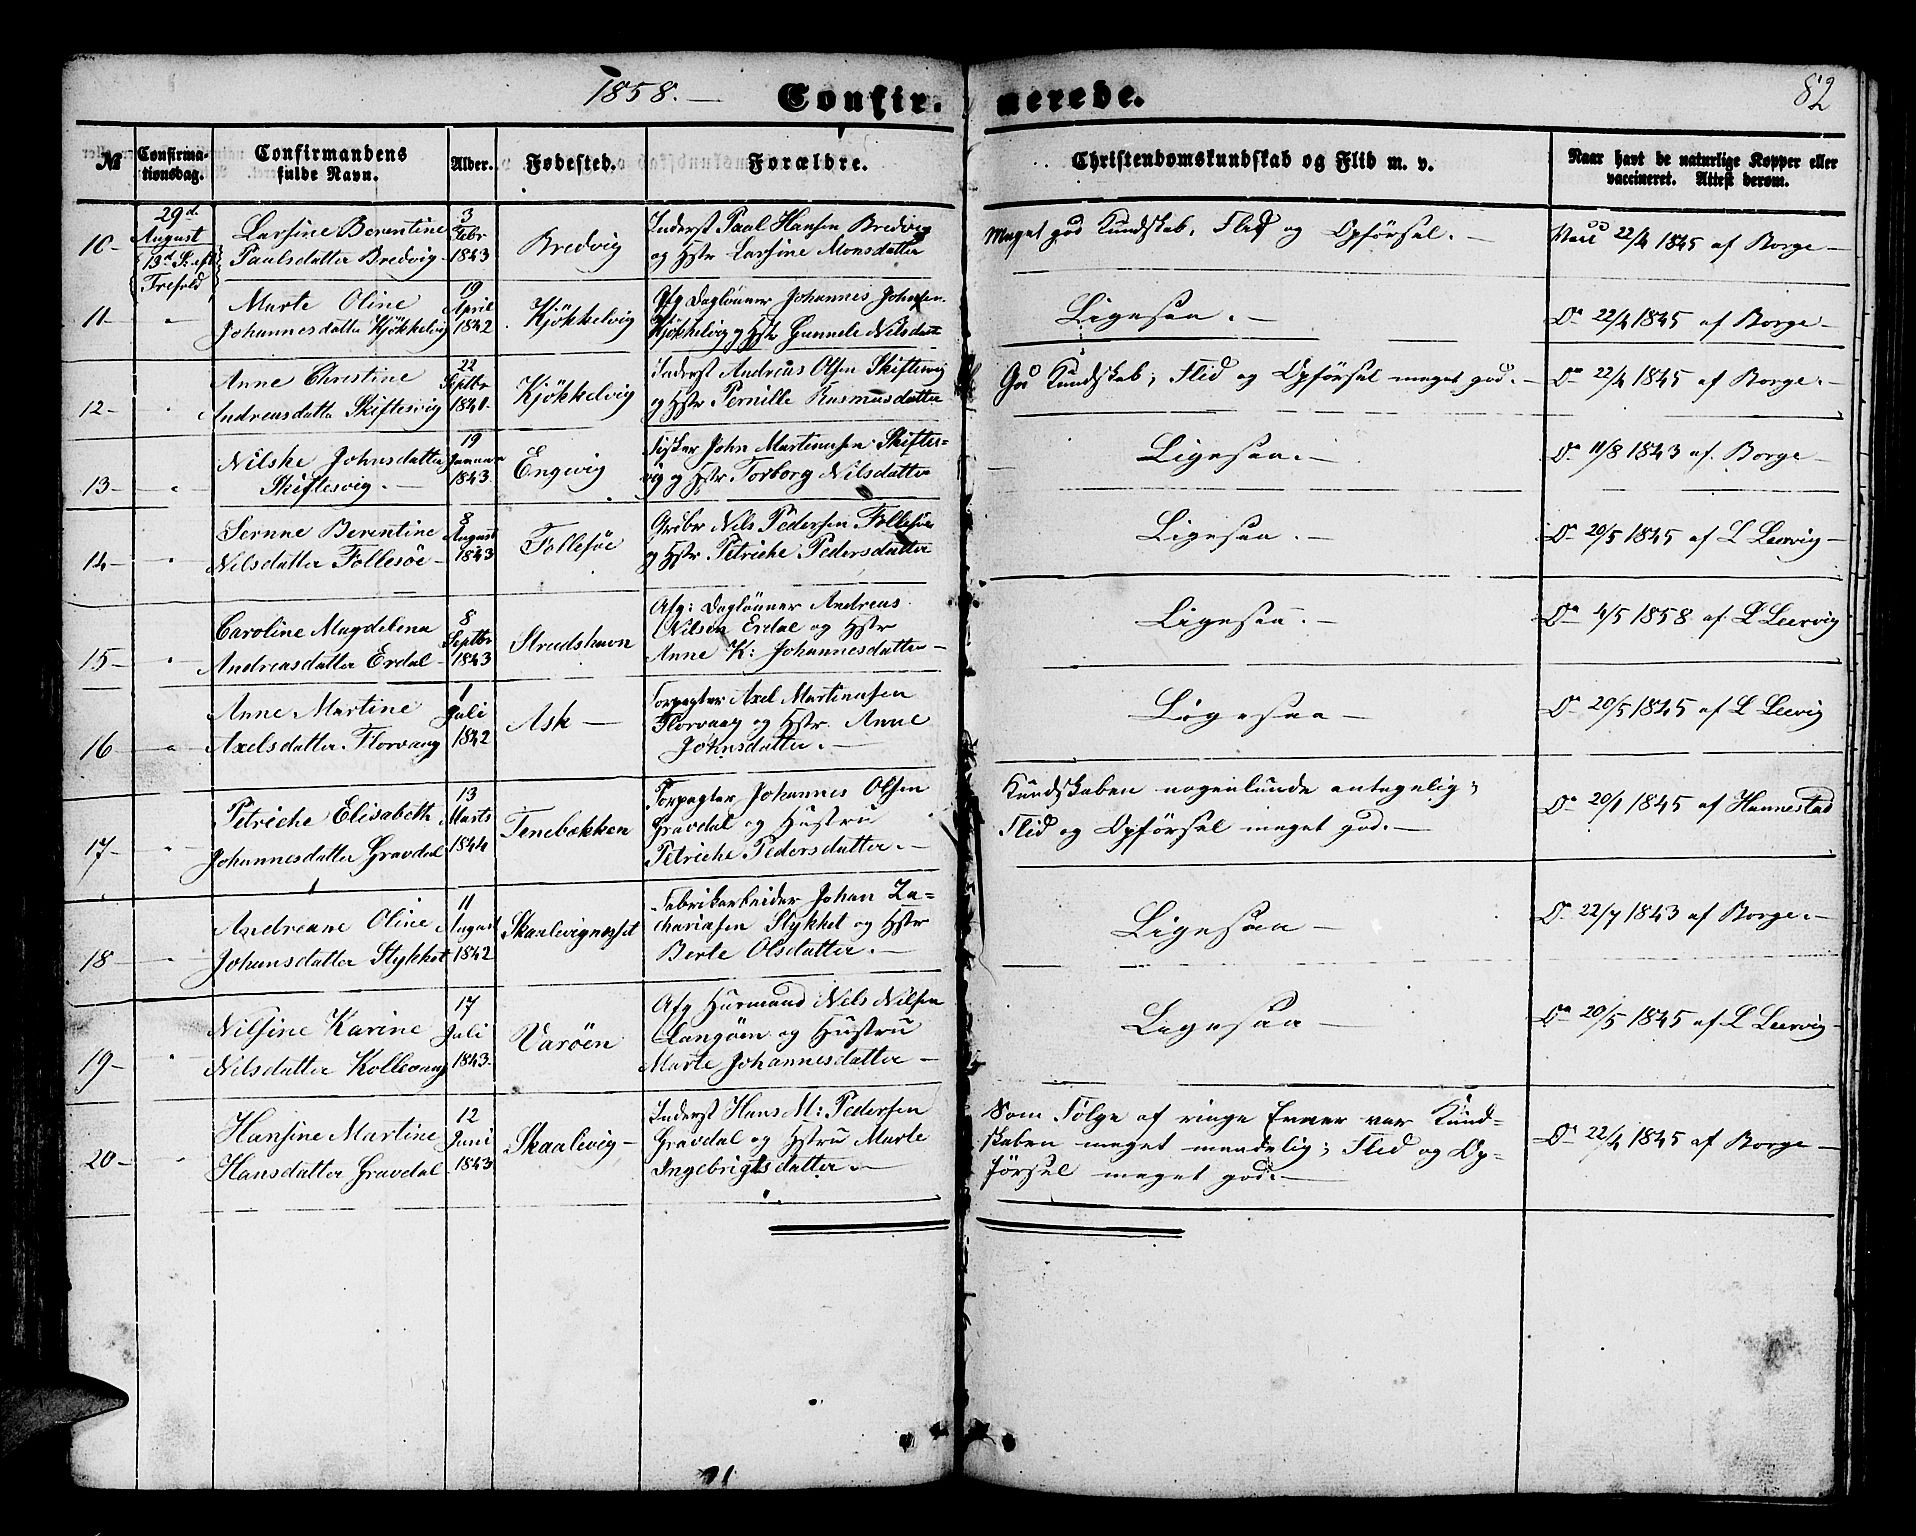 1858. — Confirmerede. 82
№ Confirmationsdag. Confirmandens fulde Navn. Alder. Fødested. Forældre. Christendomskundskab og Flid m. v. Naar havt de naturlige Kopper eller vaccineret. Attest derom.
29d. August
13d S. eft.
Trefold
10 - Larsine Berentine
Paulsdatter Bredvig
3 Febr 1843
Bredvig
Inderst Paal Hansen Bredvig
og Hstr Larsine Monsdatter
Meget god Kundskab, Flid og Opførsel. —
Vacc 22/4 1845 af Borge —
11 - " Marte Oline
Johannesdatter Kjøkkelvig
19 April 1842
Kjøkkelvig
Afg Daglønner Johannes Johnsen
Kjøkkelvig og Hstr Gunnele Nilsdat
Ligesaa. —
Do 22/4 1845 af Borge —
12 - " Anne Christine
Andreasdatte Skiftesvig
22 Septbr 1840.
Kjøkkelvig
Inderst Andreas Olsen Skiftesvig
og Hstr Pernille Rasmusdatter
God Kundskab; Flid og Opførsel meget god. —
Do 22/4 1845 af Borge. —
13 - " Nilske Johnsdatter
Skiftesvig. —
19 Januar 1843.
Engevig
Fisker John Martinusen Skiftes=
vig og Hstr Torborg Nilsdatter
Ligesaa. —
Do 11/8 1843 af Borge —
14 - " Sernne Berentine
Nilsdatter Follesöe -
8 August 1843
Follesöe
Grdbr Nils Pedersen Follesöe
og Hstr Petriche Pedersdatter
Ligesaa. —
Do 20/5 1845 af L Leervig —
15 - " Caroline Magdelena
Andreasdatter Erdal -
8 Septbr 1843
Strudshavn
Afg: Daglönner Andreas
Nilsen Erdal og Hstr
Anne K: Johannesdatter —
Ligesaa. —
Do 4/5 1858 af L Leervig
16 - " Anne Martine
Axelsdatter Florvaag
1 Juli 1842
Ask —
Forpagter Axel Martinusen
Florvaag og Hstr. Anne
Johnsdatter. —
Ligesaa —
Do 20/5 1845 af L Leervig
17 - " Petriche Elisabeth
Johannesdatter Gravdal
13 Marts 1844
Tenebakken
Forpagter Johannes Olsen
Gravdal og Hustru
Petriche Pedersdatter. —
Kundskaben nogenlunde antagelig;
Flid og Opførsel meget god. —
Do 20/1 1845 af Hannestad
18 - " Andreane Oline
Johansdatter Stykket
11 August 1842
Skaalevignesset
Fabrikarbeider Johan Za=
chariasen Stykket og Hstr
Berte Olsdatter. —
Ligesaa —
Do 22/7 1843 af Borge. —
19 - " Nilsine Karine
Nilsdatter Kollevaag
17 Juli 1843.
Varöen
Afg Huusmand Nels Nilsen
Langöen og Hustru
Marte Johannesdatter —
Ligesaa —
Do 20/5 1845 af L Leervig —
20 - " Hansine Martine
Hansdatter Gravdal
12 Juni 1843
Skaalevig —
Inderst Hans M: Pedersen
Gravdal og Hstru Marte
Ingebrigtsdatter. —
Som Følge af ringe Evner var Kund=
skaben meget maadelig; Flid og Op=
førsel meget god. —
Do 22/4 1845 af Borge —